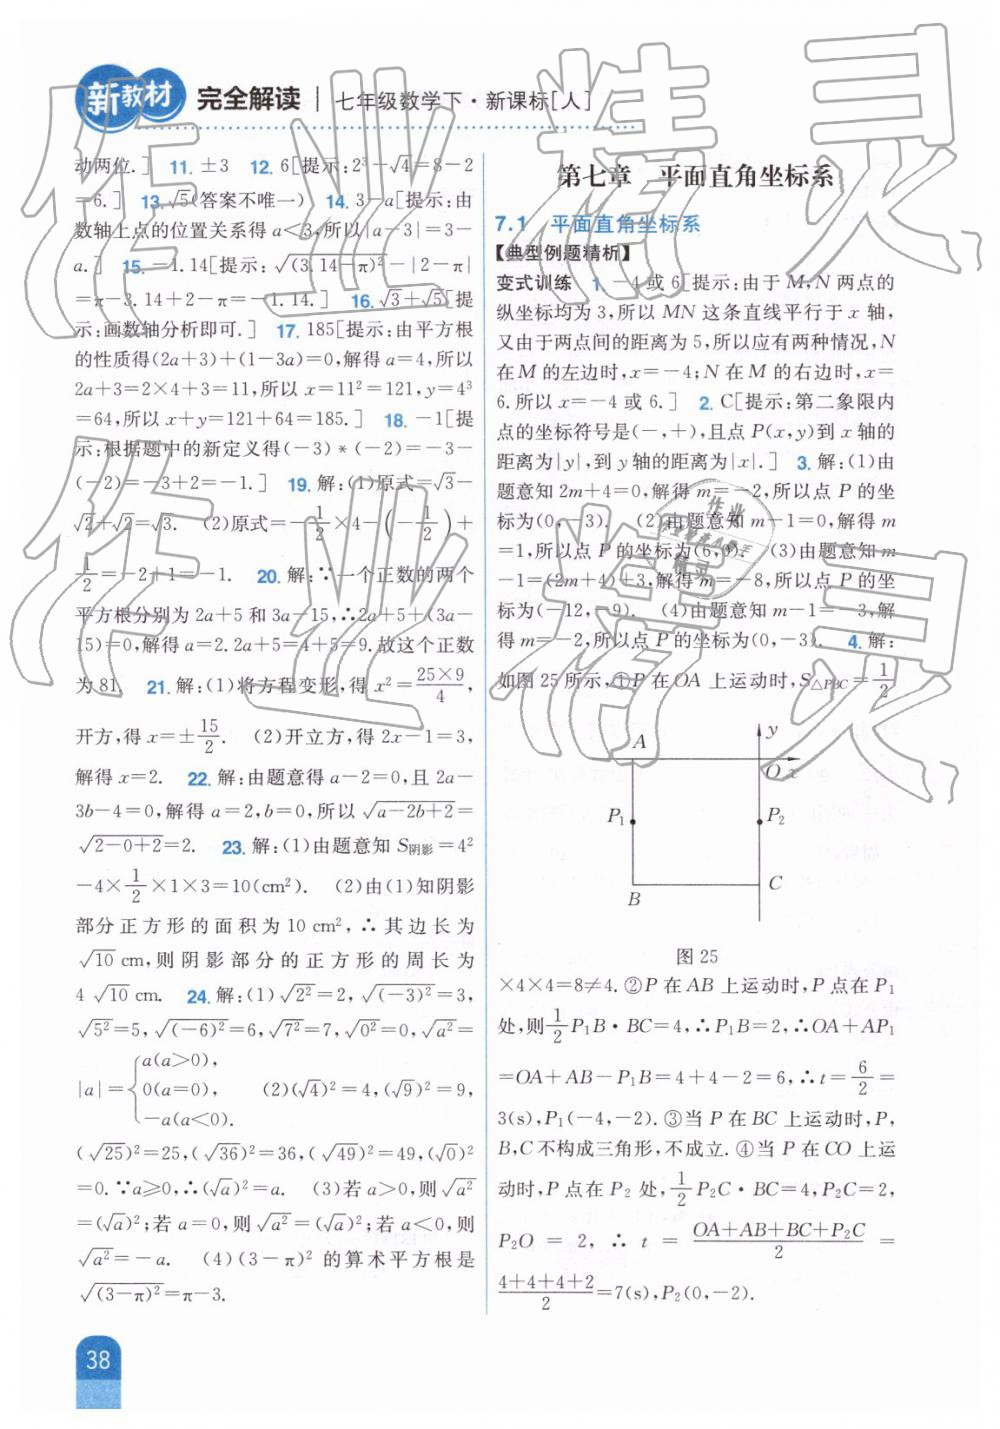 新教材 完全解读 七年级数学下·新课标[人]
动两位.] 11. ±3 12. 6[提示:2³-√4=8-2
=6.] 13. √5(答案不唯一) 14. 3-a[提示:由
数轴上点的位置关系得 a<3,所以|a-3|=3-
a.] 15. -1.14[提示:√(3.14-π)²-|2-π|
=π-3.14+2-π=-1.14.] 16. √3+√5[提
示:画数轴分析即可.] 17. 185[提示:由平方根
的性质得(2a+3)+(1-3a)=0,解得 a=4,所以
2a+3=2×4+3=11,所以 x=11²=121,y=4³
=64,所以 x+y=121+64=185.] 18. -1[提
示:根据题中的新定义得(-3)*(-2)=-3-
(-2)=-3+2=-1.] 19. 解:(1)原式=√3-
√2+√2=√3. (2)原式=-1/2×4-(-1/2)+
1/2=-2+1=-1. 20. 解:∵一个正数的两个
平方根分别为 2a+5 和 3a-15,∴2a+5+(3a-
15)=0,解得 a=2. 2a+5=4+5=9.故这个正数
为 81. 21. 解:(1)将方程变形,得 x²=25×9/4,
开方,得 x=±15/2. (2)开立方,得 2x-1=3,
解得 x=2. 22. 解:由题意得 a-2=0,且 2a-
3b-4=0,解得 a=2,b=0,所以 √a-2b+2=
√2-0+2=2. 23. 解:(1)由题意知 S阴影=4²
-4×1/2×1×3=10(cm²). (2)由(1)知阴影
部分正方形的面积为 10 cm²,∴其边长为
√10 cm,则阴影部分的正方形的周长为
4√10 cm. 24. 解:(1)√2²=2,√(-3)²=3,
√5²=5,√(-6)²=6,√7²=7,√0²=0,√a²=
|a|={a(a>0),
0(a=0), (2)(√4)²=4,(√9)²=9,
-a(a<0).
(√25)²=25,(√36)²=36,(√49)²=49,(√0)²
=0.∵a≥0,∴(√a)²=a. (3)若 a>0,则√a²
=(√a)²;若 a=0,则√a²=(√a)²;若 a<0,则
√a²=-a. (4)(3-π)² 的算术平方根是
√(3-π)²=π-3.
第七章 平面直角坐标系
7.1 平面直角坐标系
【典型例题精析】
变式训练 1. -4 或 6[提示:由于 M,N 两点的
纵坐标均为 3,所以 MN 这条直线平行于 x 轴,
又由于两点间的距离为 5,所以应有两种情况,N
在 M 的左边时,x=-4;N 在 M 的右边时,x=
6.所以 x=-4 或 6.] 2. C[提示:第二象限内
点的坐标符号是(-,+),且点 P(x,y)到 x 轴的
距离为|y|,到 y 轴的距离为|x|.] 3. 解:(1)由
题意知 2m+4=0,解得 m=-2,所以点 P 的坐
标为(0,-3). (2)由题意知 m-1=0,解得 m
=1,所以点 P 的坐标为(6,0). (3)由题意知 m
-1=(2m+4)+3,解得 m=-8,所以点 P 的坐
标为(-12,-9). (4)由题意知 m-1=-3,解
得 m=-2,所以点 P 的坐标为(0,-3). 4. 解:
如图 25 所示,①P 在 OA 上运动时,S△PBC=1/2
A y
O x
P₁ P₂
B C
图 25
×4×4=8≠4. ②P 在 AB 上运动时,P 点在 P₁
处,则1/2P₁B·BC=4,∴P₁B=2,∴OA+AP₁
=OA+AB-P₁B=4+4-2=6,∴t=6/2=
3(s),P₁(-4,-2). ③当 P 在 BC 上运动时,P,
B,C 不构成三角形,不成立. ④当 P 在 CO 上运
动时,P 点在 P₂ 处,1/2P₂C·BC=4,P₂C=2,
P₂O=2,∴t=OA+AB+BC+P₂C/2=
4+4+4+2/2=7(s),P₂(0,-2).
38
作业精灵
作业精灵
作业
精灵